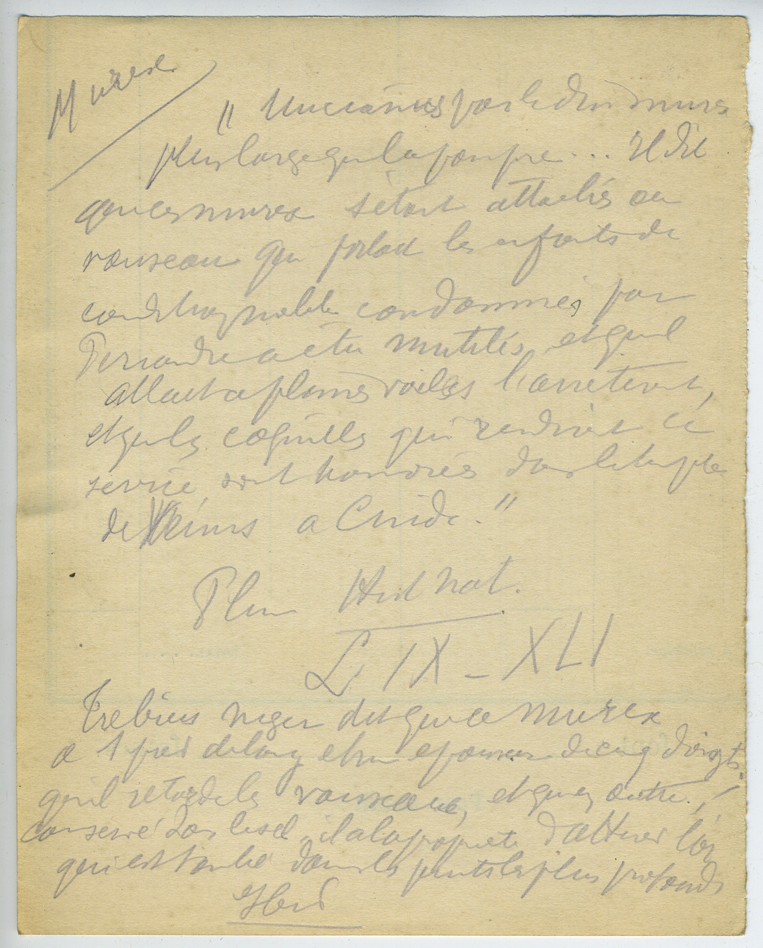 Murex
" Mucianus parle d'un murex
plus large que la pourpre... Il dit
que ces murex s'étant attachés au
vaisseau qui portait les enfants de
condamnés par
Periandre a être mutilés, et qui
allait a pleines voiles l'arretèrent,
et que les coquilles qui rendirent ce
service, sont honorées dans le temple
de Vénus a Cnide."
Plin Hist Nat.
L IX - XLI
Trebius niger dit que ce murex
a 1 pied de long et un epaisseur de cinq doigts,
qu'il retarde les vaisseaux, et que, outre,
conservé dans le sel, il a la propriete d'attirer l'or
qui est tombé dans les puits les plus profonds
Ibid